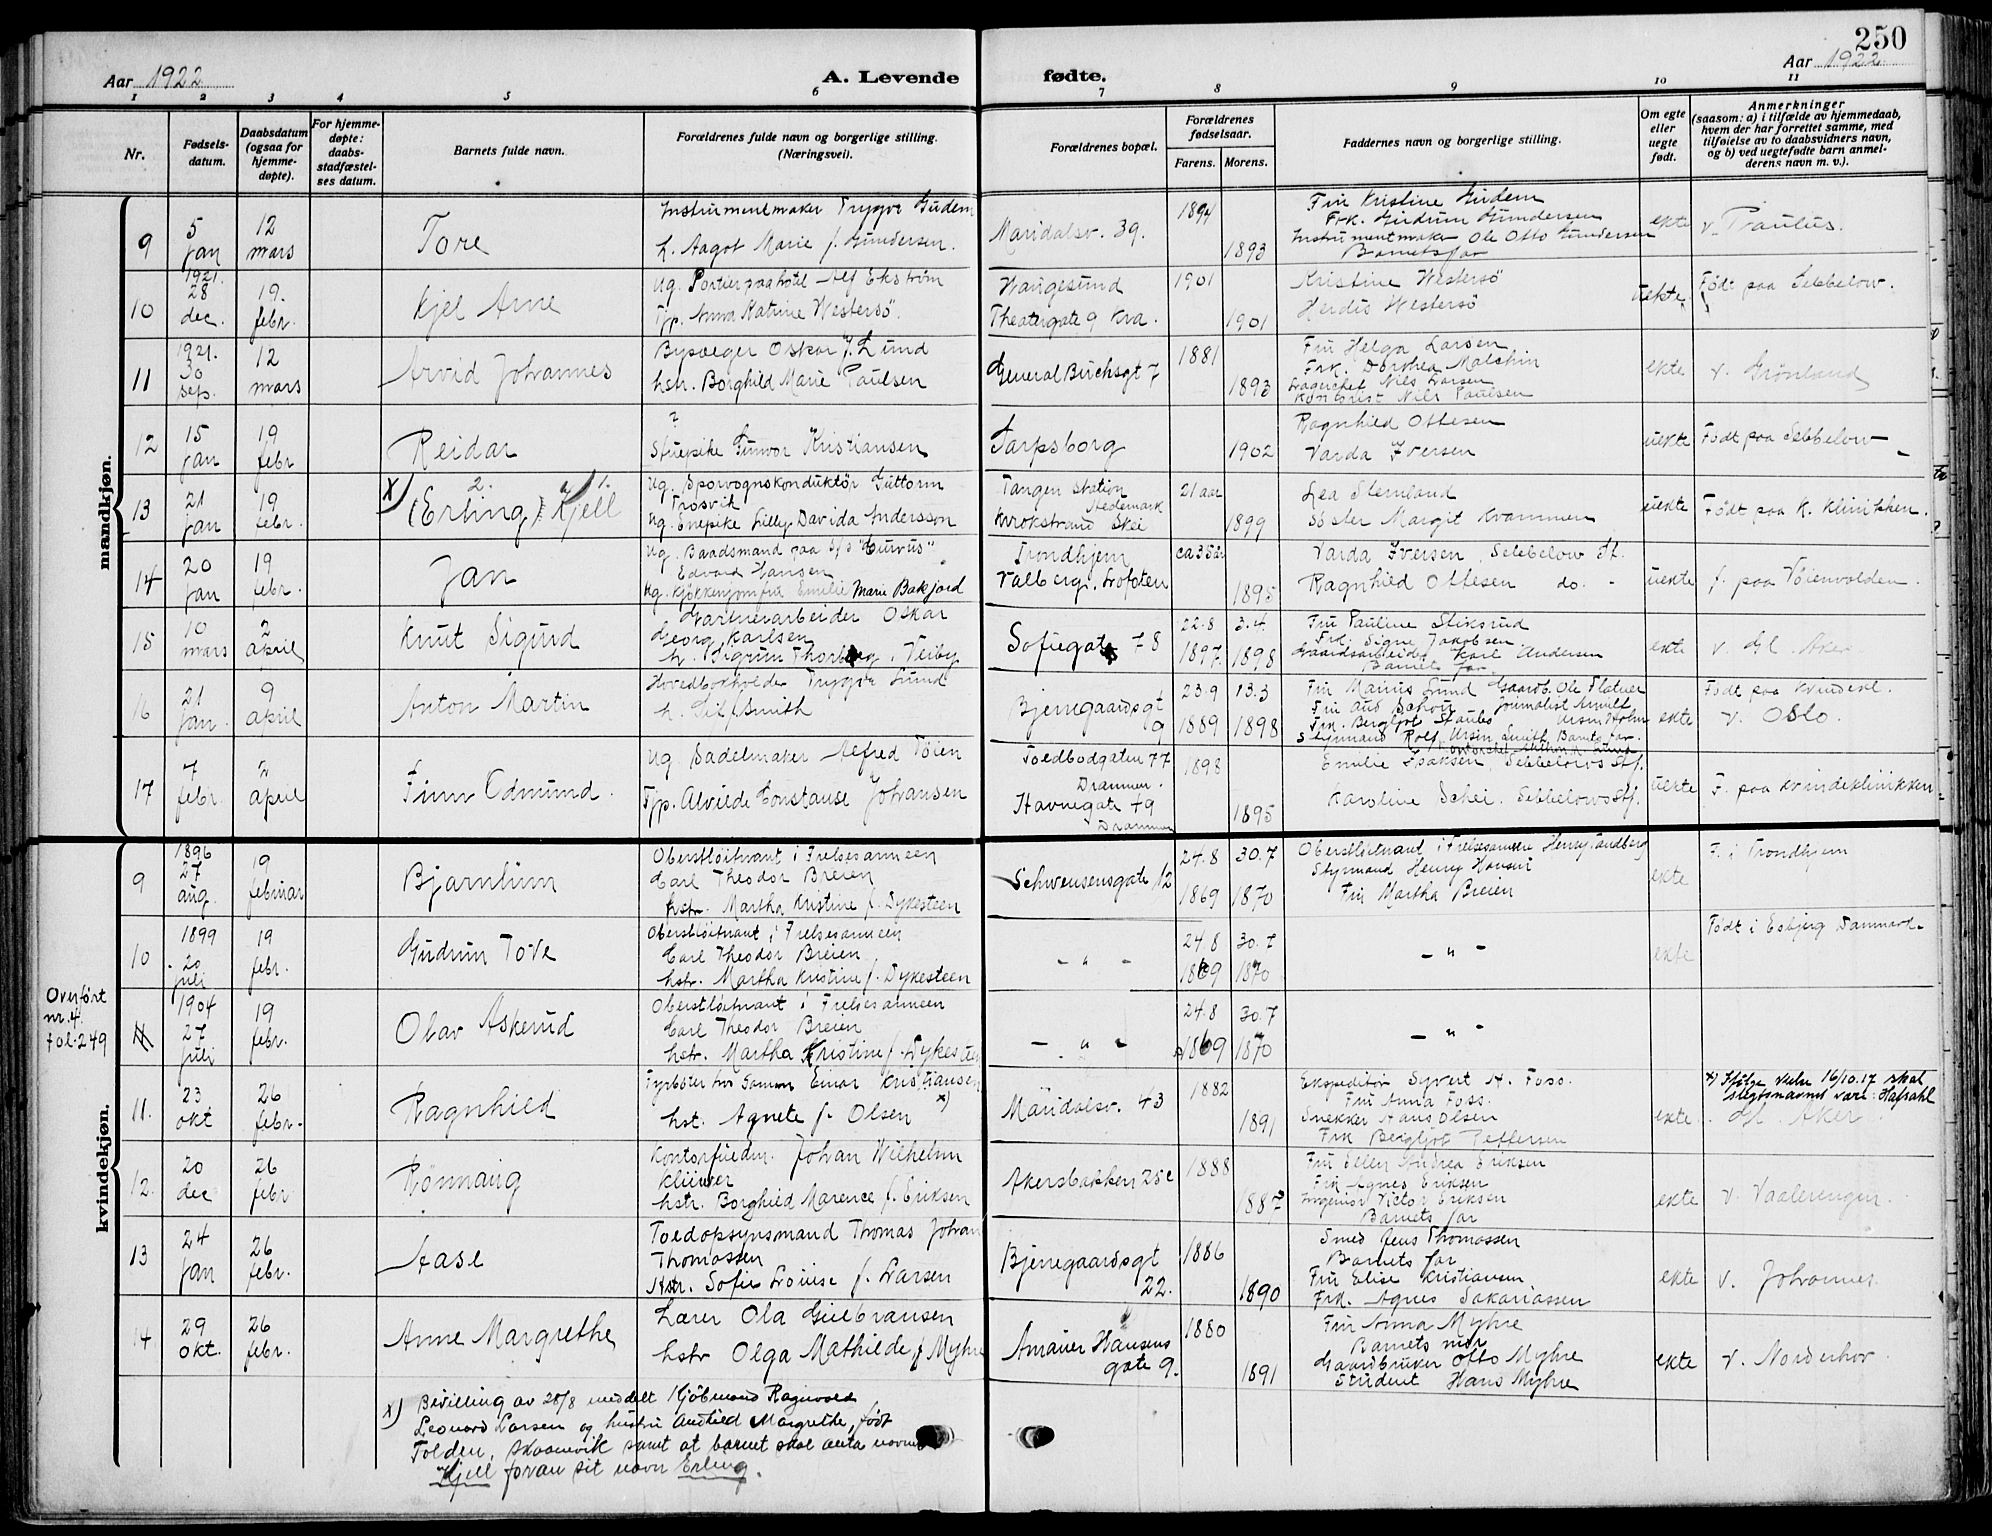 250
Aar 1922
A. Levende
fødte.
Aar 1922
1 2 3 4 5 6 7 8 9 10 11
Nr.
Fødsels-
datum.
Daabsdatum
(ogsaa for
hjemme-
døpte).
For hjemme-
døpte:
daabs-
stadfæstel-
ses datum.
Barnets fulde navn.
Forældrenes fulde navn og borgerlige stilling.
(Næringsvei).
Forældrenes bopæl.
Forældrenes
fødselsaar.
Farens. Morens.
Faddernes navn og borgerlige stilling.
Om egte
eller
uegte
født.
Anmerkninger
(saasom: a) i tilfælde av hjemmedaab,
hvem der har forrettet samme, med
tilføielse av to daabsvidners navn,
og b) ved uegtefødte barn anmel-
derens navn m. v.).
mandkjøn.
9
5
jan
12
mars
Tore
Instrumentmaker Trygve Gudem
h. Aagot Marie f. Gundersen.
Maridalsv. 39.
1894
1893
Fru Kristine Gudem
Frk. Gudrun Gundersen
Instrumentmaker Ole Otto Gundersen
Barnets far
ekte
v. Paulus.
10
1921.
28
dec.
19.
febr.
Kjel Arne
Ug. Portier paa hotel Alf Ekstrøm
Tjp. Anna Katrine Westersö.
Haugesund
Theatergate 9 Kra.
1901
1901
Kristine Westersö
Herdis Westersö
uekte
Født paa Sebbelow.
11
1921.
30
sep.
12
mars
Arvid Johannes
Byselger Oskar J. Lund
hstr. Borghild Marie Paulsen
General Birchsgt 7
1881
1893
Fru Helga Larsen
Frk. Dorthea Malchin
Lagerchef Nils Larsen
Kontorist Nils Paulsen
ekte
v. Grönland
12
15
jan
19
febr
Reidar
?
Stuepike Gunvor Kristiansen
Sarpsborg
1902
Ragnhild Ottesen
Varda Iversen
uekte
Født paa Sebbelow
13
21
jan
19
febr.
x) 2. 1.
(Erling) Kjell
Ug. Sporvognskonduktør Guttorm
Trosvik
Ug. Enepike Lilly Davida Andersson
Tangen station
Hedemark
Krokstrand Skei
21 aar
1899
Lea Stenland
Søster Margit Kvammen
uekte
Født paa K. Klinikken.
14
20
jan
19
febr.
Jan
Ug. Baadsmand paa S/S "Curvus"
Edvard Hansen
Ug. Kjøkkenjomfru Emilie Marie Bakjord
Trondhjem
Valberg, Lofoten
ca 35 år
1895
Varda Iversen, Sebbelow St.
Ragnhild Ottesen do. -
uekte
f. paa Tøienvolden.
15
10
mars
2
april
Knut Sigurd
Gartnerarbeider Oskar
Georg Karlsen
h. Sigrun Thorberg, Veiby
Sofiegate 78
22.8
1897.
3.4
1898
Fru Pauline Sliksrud
Frk. Signe Jakobsen
Gaardsarbeider Karl Andersen
Barnets far
ekte
v. Gl. Aker
16
21
jan.
9
april
Anton Martin
Hovedbokholder Trygve Lund
h. Sif Smith
Bjerregaardsgt
9
23.9
1889
13.3
1898
Fru Maius Lund Gaardb. Ole Flatner
Fru Aud Schou Journalist Arnulf
Frk. Bergljot Staubo
Styrmand Rolf Ursin Smith Barnets far.
ekte
Født paa Kvindekl.
v. Oslo.
17
7
febr.
2
april
Finn Edmund.
Ug. Sadelmaker Alfred Tøien
Tjp. Alvilde Constanse Johansen
Toldbodgaten 77
Drammen.
Havnegate 49
Drammen
1898
1895
Emilie Isaksen, Sebbelows St.
Karoline Schei, Sebbelows St.
uekte
F. paa Kvindeklinikken
kvindekjøn.
9
1896
27
aug.
19
februar
Bjarnlum
Oberstløitnant i Frelsesarmeen
Carl Theodor Breien
hstr. Martha Kristine f. Dykesteen
Schwensensgate 12
24.8
1869
30.7
1870
Oberstløitnant i Frelsesarmeen Henry Tandberg
Styrmand Henry Hansen
Fru Martha Breien
ekte
F. i Trondhjem
10
1899
20
juli
19
febr.
Gudrun Tove
Oberstløitnant i Frelsesarmeen
Carl Theodor Breien
hstr. Martha Kristine f. Dykesteen
- " -
24.8
1869
30.7
1870
- " -
ekte
Født i Esbjerg Danmark.
Overført
nr. 4.
fol. 249
11
1904
27
juli
19
febr.
Olav Askerud
Oberstløitnant i Frelsesarmeen
Carl Theodor Breien
hstr. Martha Kristine f. Dykesteen
- " -
24.8
1869
30.7
1870
- " -
11.
23
okt
26
febr.
Ragnhild
Fyrbøter hos Gamon Einar Kristiansen
x)
hst. Agnete f. Olsen
Maridalsv. 43
1882
1891
Ekspeditør Syvert A. Foss.
Fru Anna Foss.
Snekker Hans Olsen
Frk Bergljot Teffersen
ekte
x) Ifølge skriv 16/10.17 skal
slegtsnavnet være: Hafsahl
Gl. Aker
12.
20
dec
26
febr
Rönnaug
Kontorfuldm. Johan Wilhelm
Klüwer
hstr. Borghild Marence f. Eriksen
Akersbakken 25 c
1888
1887
Fru Ellen Andrea Eriksen
Frk Agnes Eriksen
Ingeniør Victor Eriksen
Barnets far
ekte
v. Vaalerengen.
13
24
jan
26
febr.
Aase
Toldopsynsmand Thomas Johan
Thomassen
Hstr. Sofie Lovise f. Larsen
Bjerregaardsgt
22.
1886
1890
Smed Jens Thomassen
Barnets far
Fru Elise Kristiansen
Frk. Agnes Sakariassen
ekte
v. Johannes.
14
29
okt.
26
febr.
Anne Margrethe
Lærer Ola Gulbransen
hstr Olga Mathilde f Myhre
Amaier Hansens
gate 9.
1880
1891
Fru Anna Myhre
Barnets mor
Gaardbruker Otto Myhre
Student Hans Myhre
ekte
v. Norderhov.
x) Bevilling av 28/8 meddelt Kjöbmand Ragnvald
Leonard Larsen og hustru Amtild Margrethe, født
Tolden, Skaanevik samt at barnet skal anta navnet
"Kjell foran sit navn Erling.